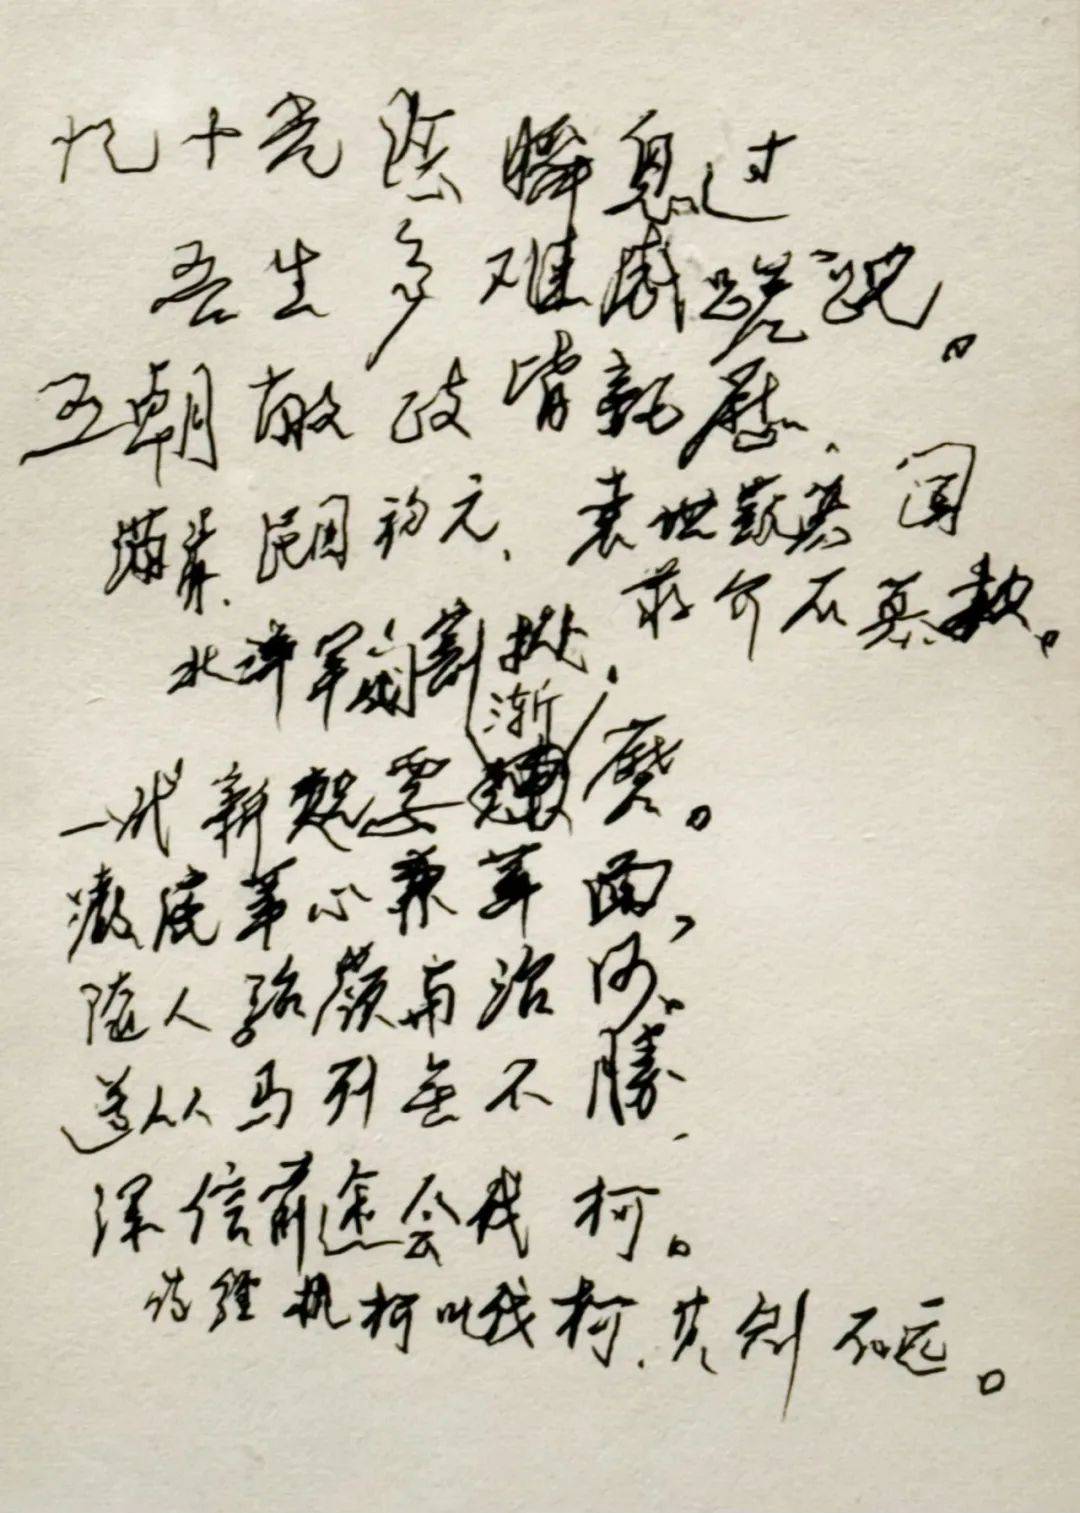 忆十光阴瞬息过
吾生多难感蹉跎。
五朝敝政皆亲历、
满清、民国初元、袁世凯篡国
北洋军阀割据，蒋介石篡权。
一代新起要渐磨。
澈底革心兼革面，
随人治河。
道从马列无不胜，
深信前途会伐柯。
诗经执柯以伐柯，其则不远。